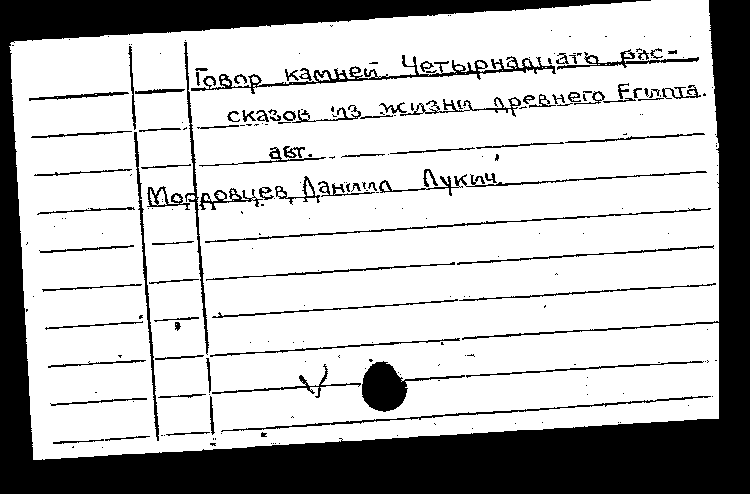 Говор камней. Четырнадцать рас-
сказов из жизни древнего Египта.
авт.
Мордовцев, Даниил Лукич.